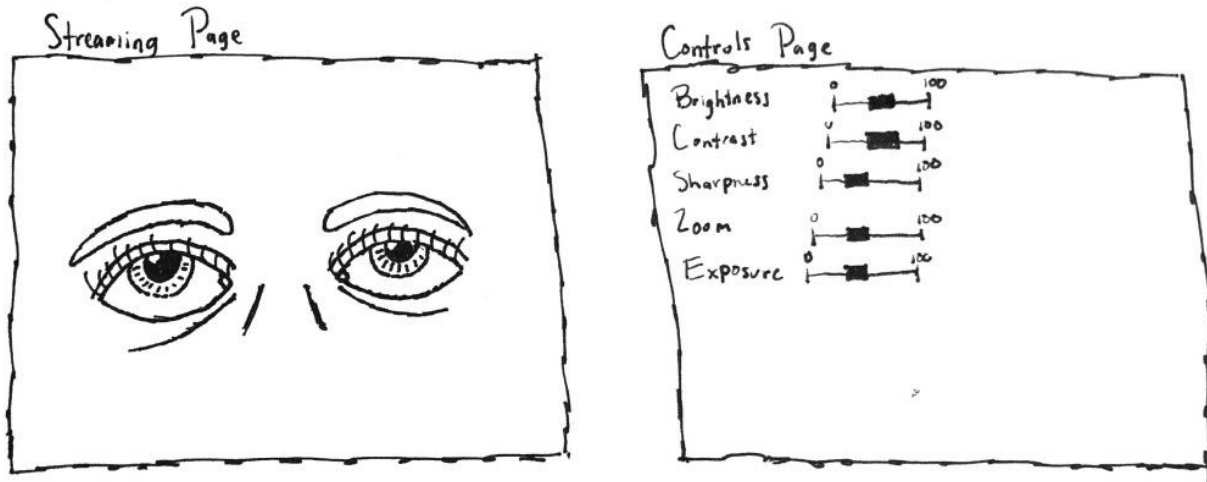 Streaming Page
Controls Page
Brightness 0 100
Contrast 0 100
Sharpness 0 100
Zoom 0 100
Exposure 0 100